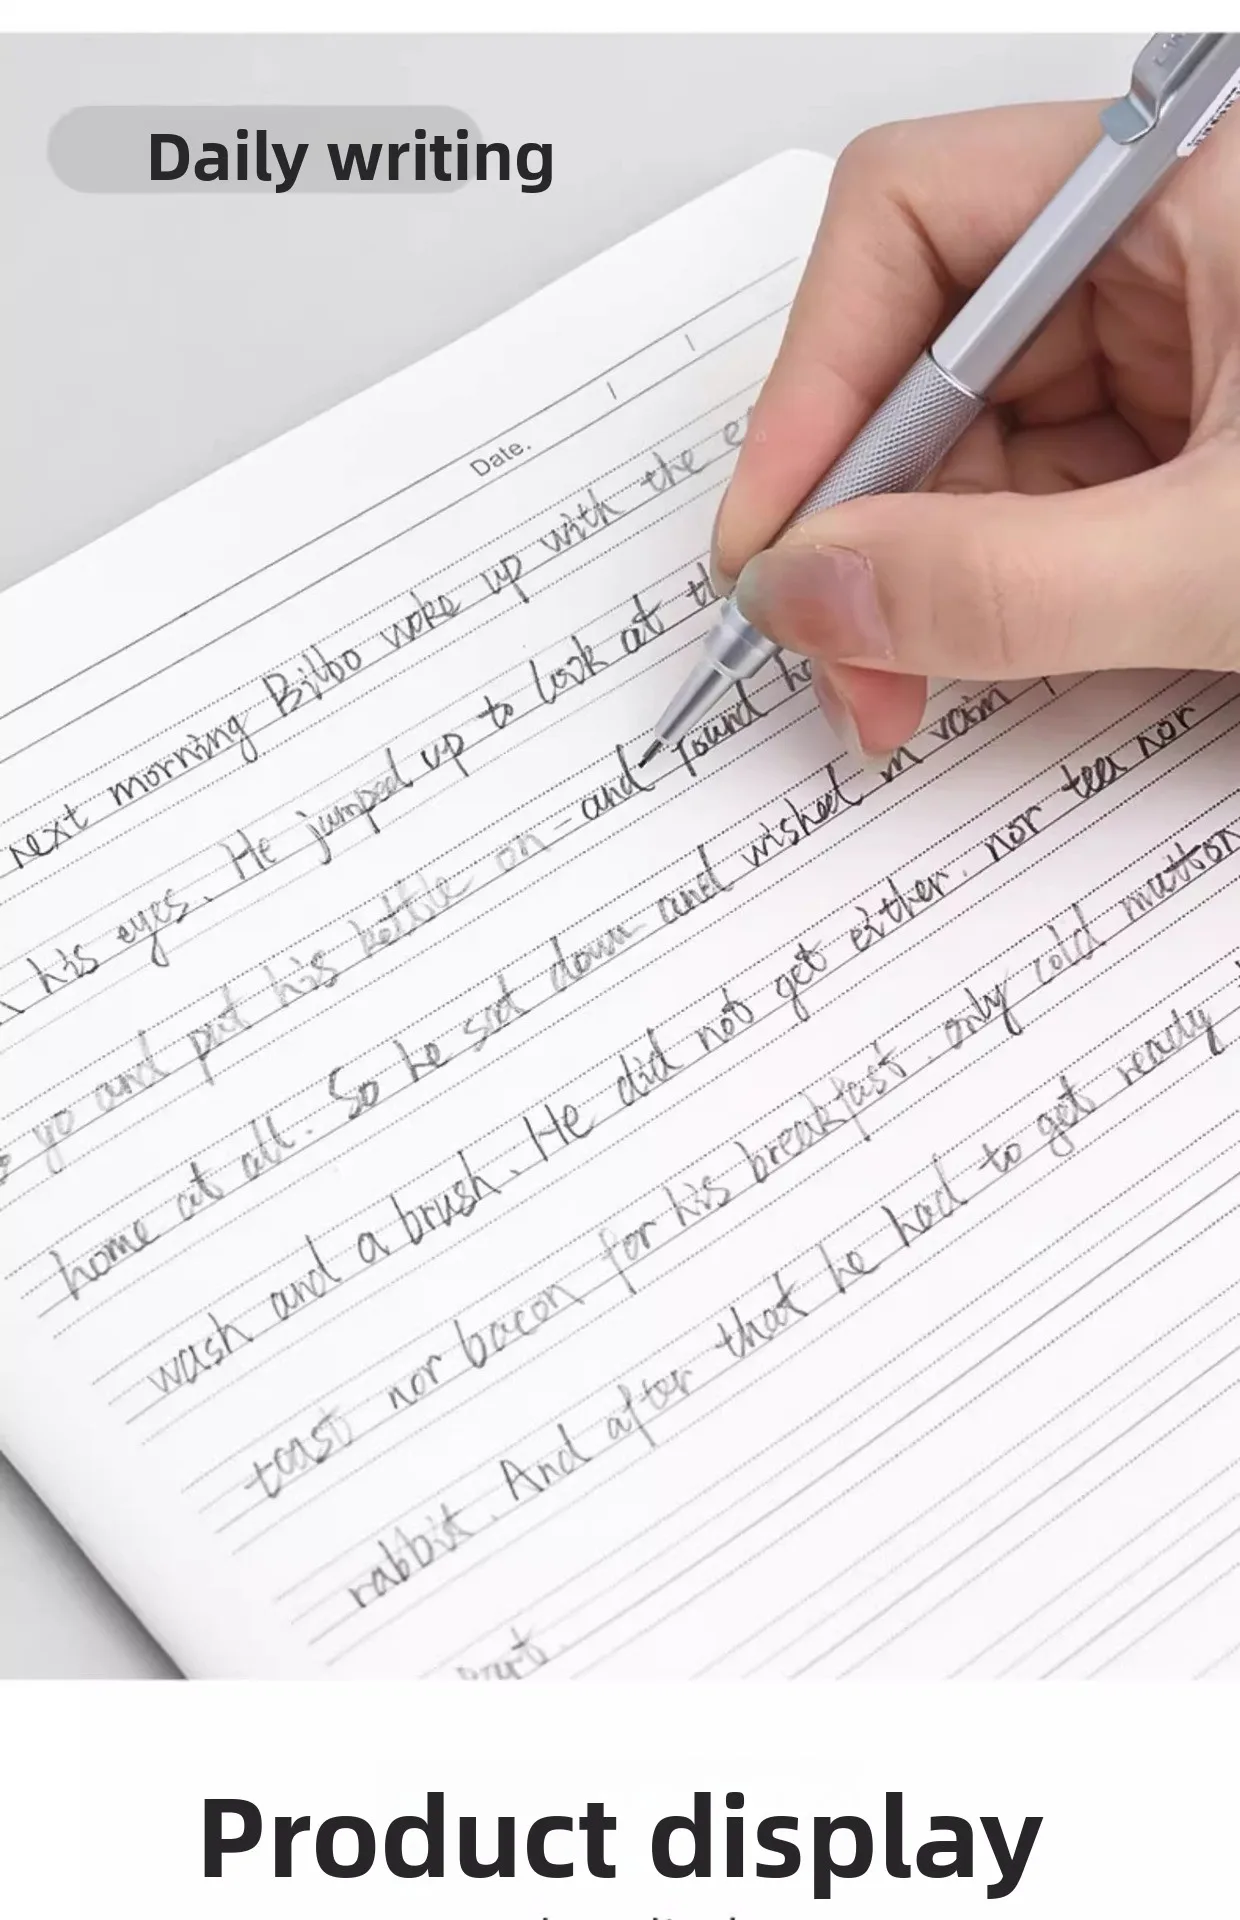 Daily writing
Date.
next morning Bilbo woke up with the
his eyes. He jumped up to look at
go and put his kettle on - and found
home at all. So he sat down and wished in vain
wash and a brush. He did not get either. nor tea nor
toast nor bacon for his breakfast. only cold mutton
rabbit. And after that he had to get ready
Product display